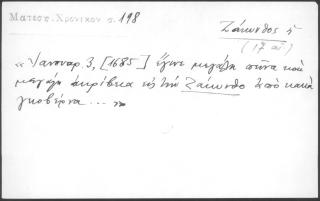 Ματεσ. Χρονικον σ. 198
Ζάκυνθος ἡ
(17 αἰ.)
« Ἰανουαρ. 3, [1685] ἔγινε μεγάλη πεῖνα καὶ
μεγάλη ἀκρίβεια εἰς τὴν Ζάκυνθο ἀπὸ κακὴ
γκοβέρνα ... »